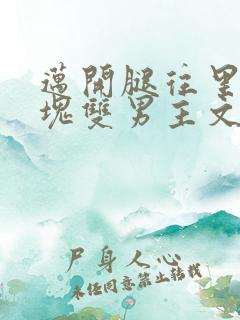 邁開腿往里
塊雙男主文
尸身人心
未经同意禁止转载